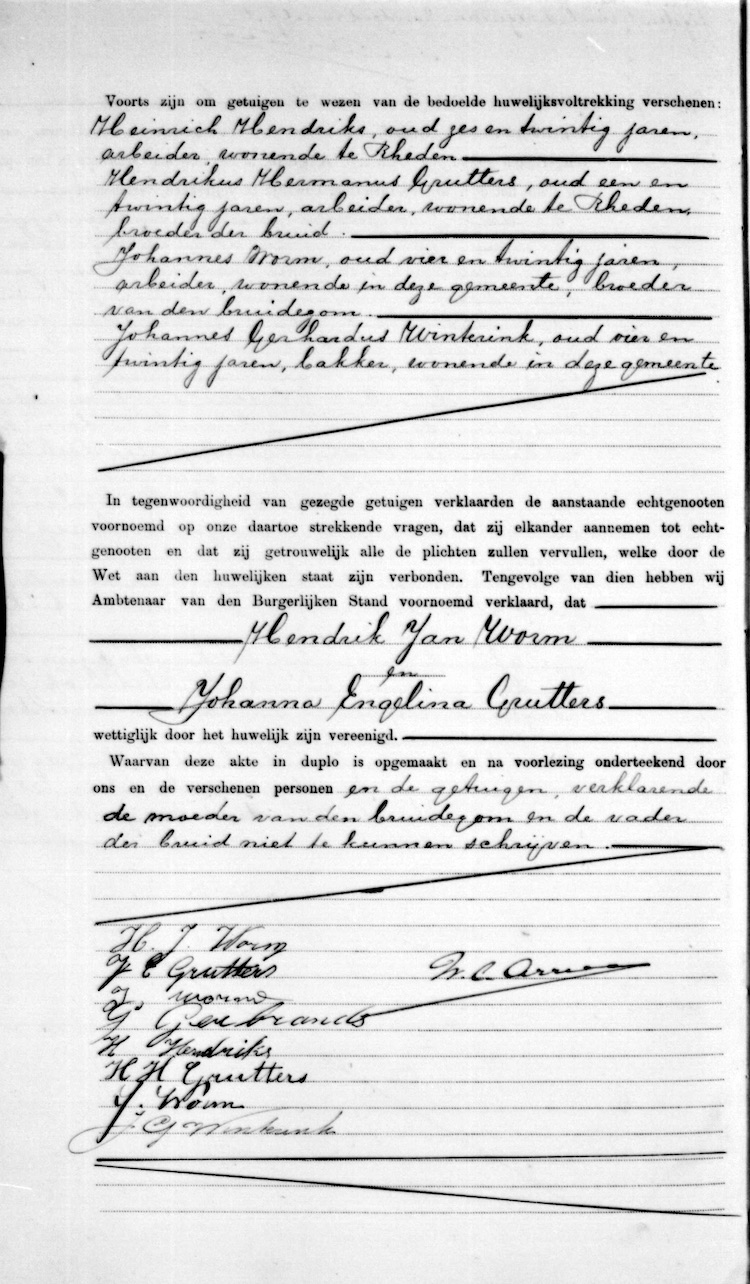 Voorts zijn om getuigen te wezen van de bedoelde huwelijksvoltrekking verschenen:
Heinrich Hendriks, oud zes en twintig jaren,
arbeider, wonende te Rheden
Hendrikus Hermanus Grutters, oud een en
twintig jaren, arbeider, wonende te Rheden,
broeder der bruid.
Johannes Worm, oud vier en twintig jaren,
arbeider, wonende in deze gemeente, broeder
van den bruidegom.
Johannes Gerhardus Winkrink, oud vier en
twintig jaren, bakker, wonende in deze gemeente
In tegenwoordigheid van gezegde getuigen verklaarden de aanstaande echtgenooten
voornoemd op onze daartoe strekkende vragen, dat zij elkander aannemen tot echt-
genooten en dat zij getrouwelijk alle de plichten zullen vervullen, welke door de
Wet aan den huwelijken staat zijn verbonden. Tengevolge van dien hebben wij
Ambtenaar van den Burgerlijken Stand voornoemd verklaard, dat
Hendrik Jan Worm
en
Johanna Engelina Grutters
wettiglijk door het huwelijk zijn vereenigd.
Waarvan deze akte in duplo is opgemaakt en na voorlezing onderteekend door
ons en de verschenen personen en de getuigen, verklarende
de moeder van den bruidegom en de vader
der bruid niet te kunnen schrijven.
H. J. Worm
J E Grutters
J. Worm
G. Gerbrands
H Hendriks
H H Grutters
J. Worm
J. G Winkrink